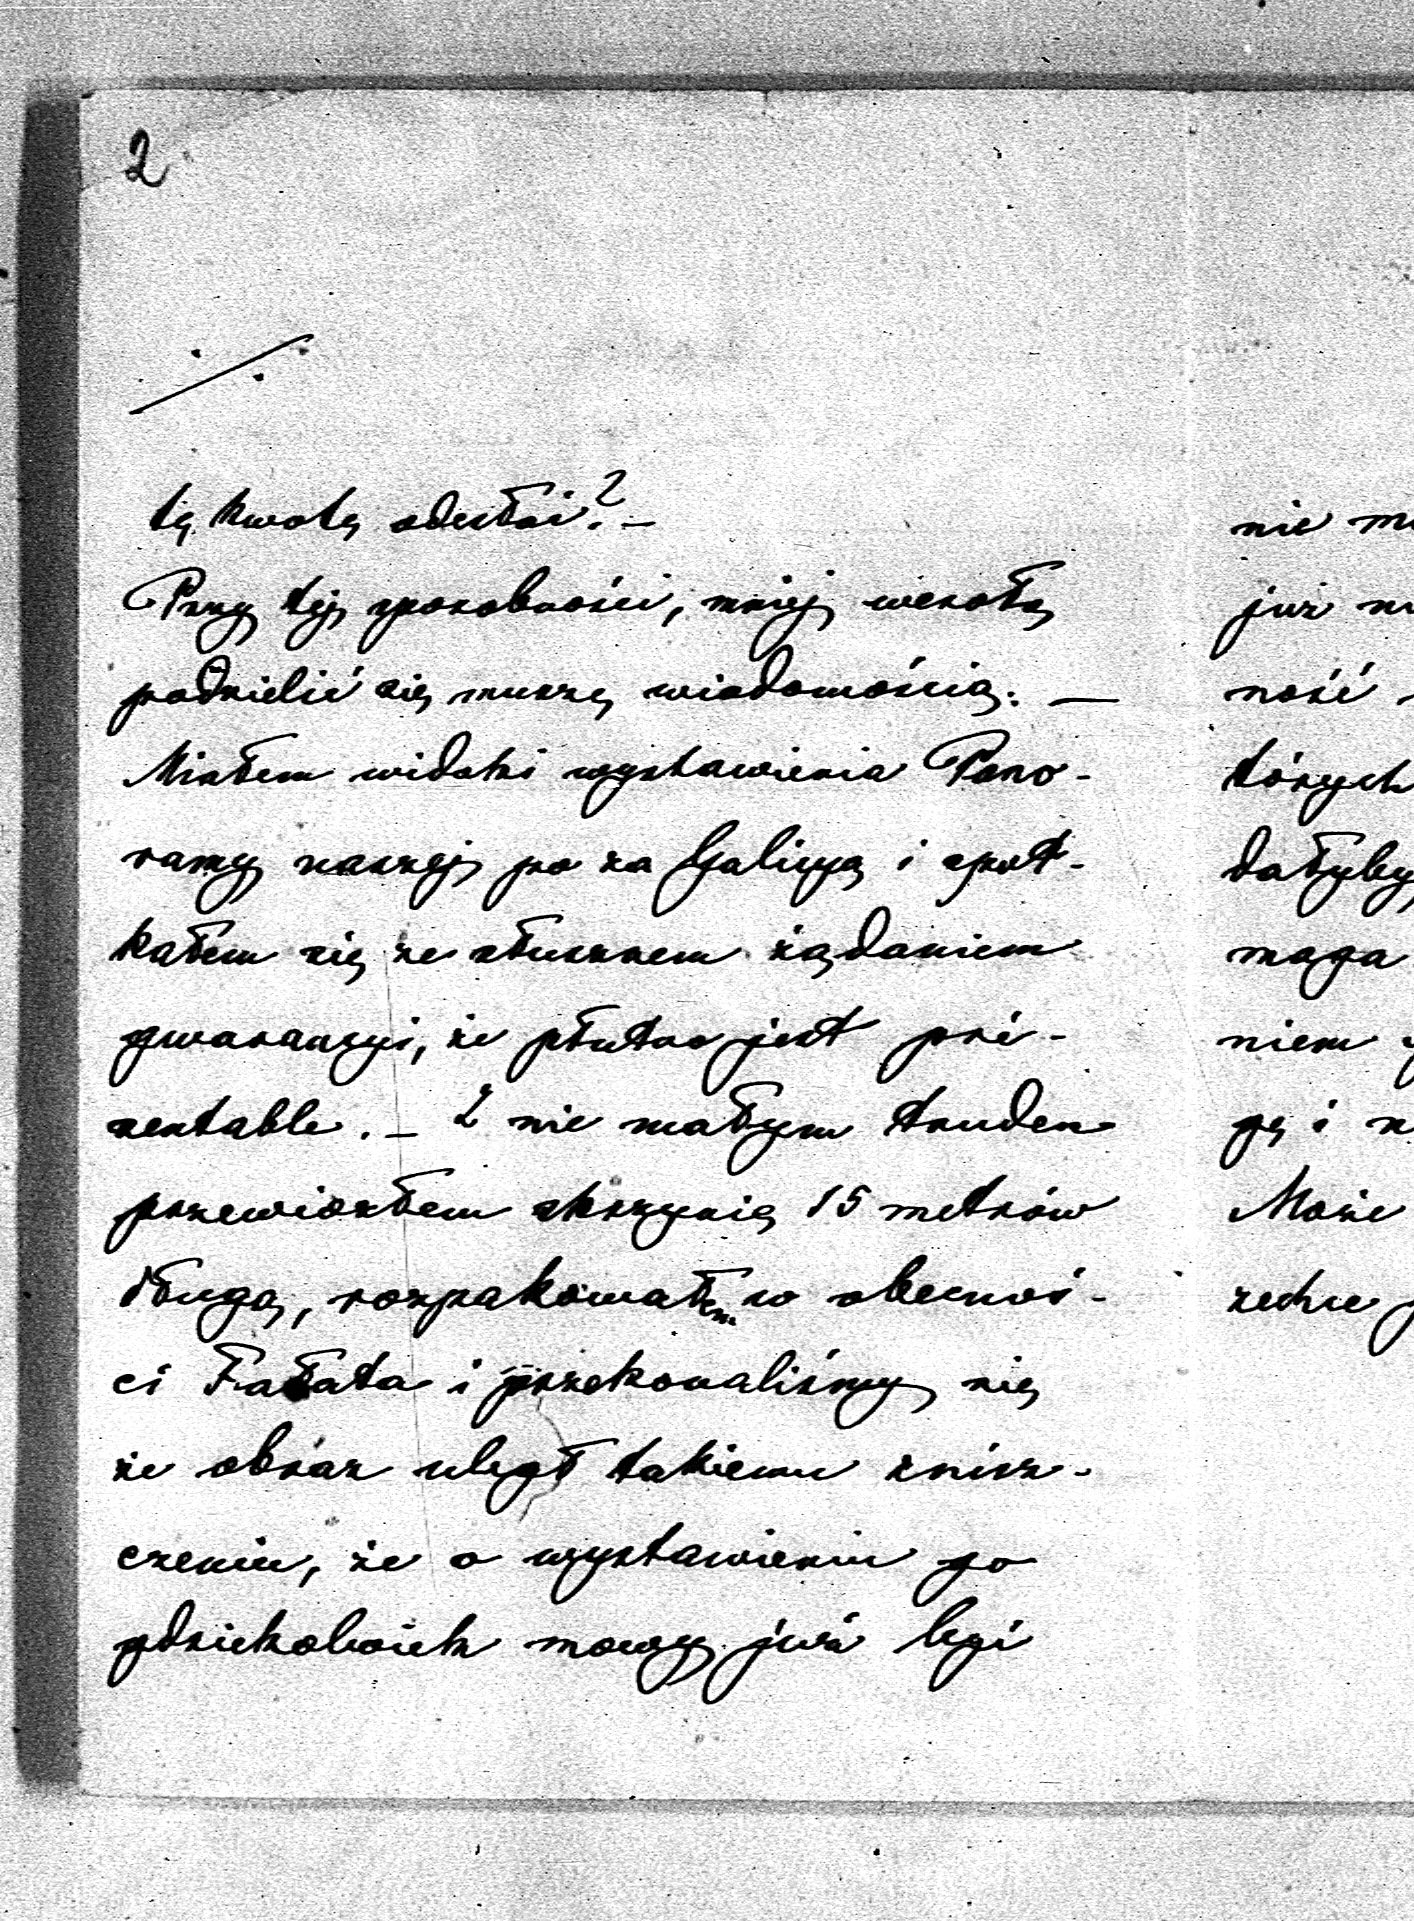 2
./.
tę kwotę odesłać? –
Przy tej sposobności, mniej wesołą
podzielić się muszę wiadomością. —
Miałem widoki wystawienia Pano-
ramy naszej po za Galicyą i spot-
kałem się ze słusznem żądaniem
gwarancyi, że płótno jest pré-
sentable. – Z nie małym trudem
przewiozłem skrzynię 15 metrów
długą, rozpakowałem w obecnoś-
ci Fałata i przekonaliśmy się
że obraz uległ takiemu znisz-
czeniu, że o wystawieniu go
gdziekolwiek mowy już być
nie m
już ni
ność
tórych
dałyby
maga
niem
gę i n
Może
zechce